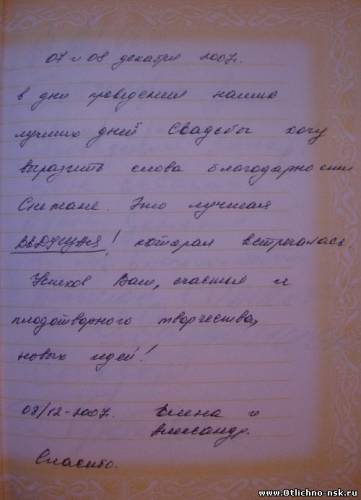 07 и 08 декабря 2007г.
в дни проведения наших
лучших дней Свадьбы хочу
выразить слова благодарности
Снежане. Это лучшая
ВЕДУЩАЯ! которая встречалась.
Успехов Вам, счастья и
плодотворного творчества,
новых идей!
08/12-2007г. Елена и
Александр.
Спасибо.
www.Otlichno-nsk.ru